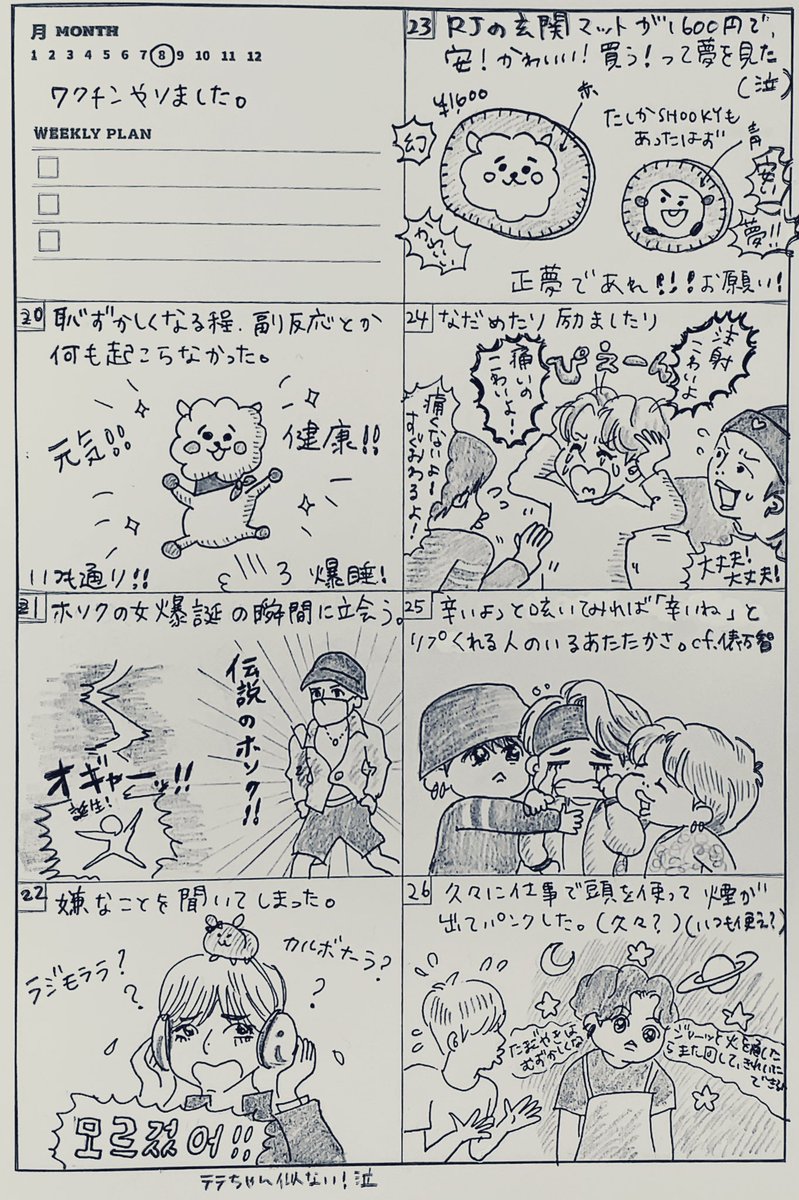 月 MONTH
1 2 3 4 5 6 7 8 9 10 11 12
ワクチンやりました。
WEEKLY PLAN
20 恥ずかしくなる程、副反応とか
何も起こらなかった。
元気!!
健康!!
いつも通り!!
爆睡!
21 ホソクの女爆誕の瞬間に立会う。
オギャーッ!!
誕生!
伝説のホソク!!
22 嫌なことを聞いてしまった。
ラジモララ?
?
カルボナーラ?
?
모르겠어!!
23 RJの玄関マットが1600円で、
安!かわいい!買う!って夢を見た
(泣)
¥1,600
赤
たしかSHOOKYも
あったはず
青
幻
かわいい
安い
夢!!
正夢であれ!!!お願い!
24 なだめたり励ましたり
注射
こわいよ
ぴえーん
痛いの
こわいよー!
痛くないよー!
すぐおわるよ!
大丈夫!
大丈夫!
25 辛いよっと呟いてみれば「辛いね」と
リプくれる人のいるあたたかさ。cf.俵万智
26 久々に仕事で頭を使って煙が
出てパンクした。(久々?)(いつも使え?)
たまごやきは
むずかしくな
ジャーッと火を通した
らまた回して、きれいに
テテちゃん似ない!泣